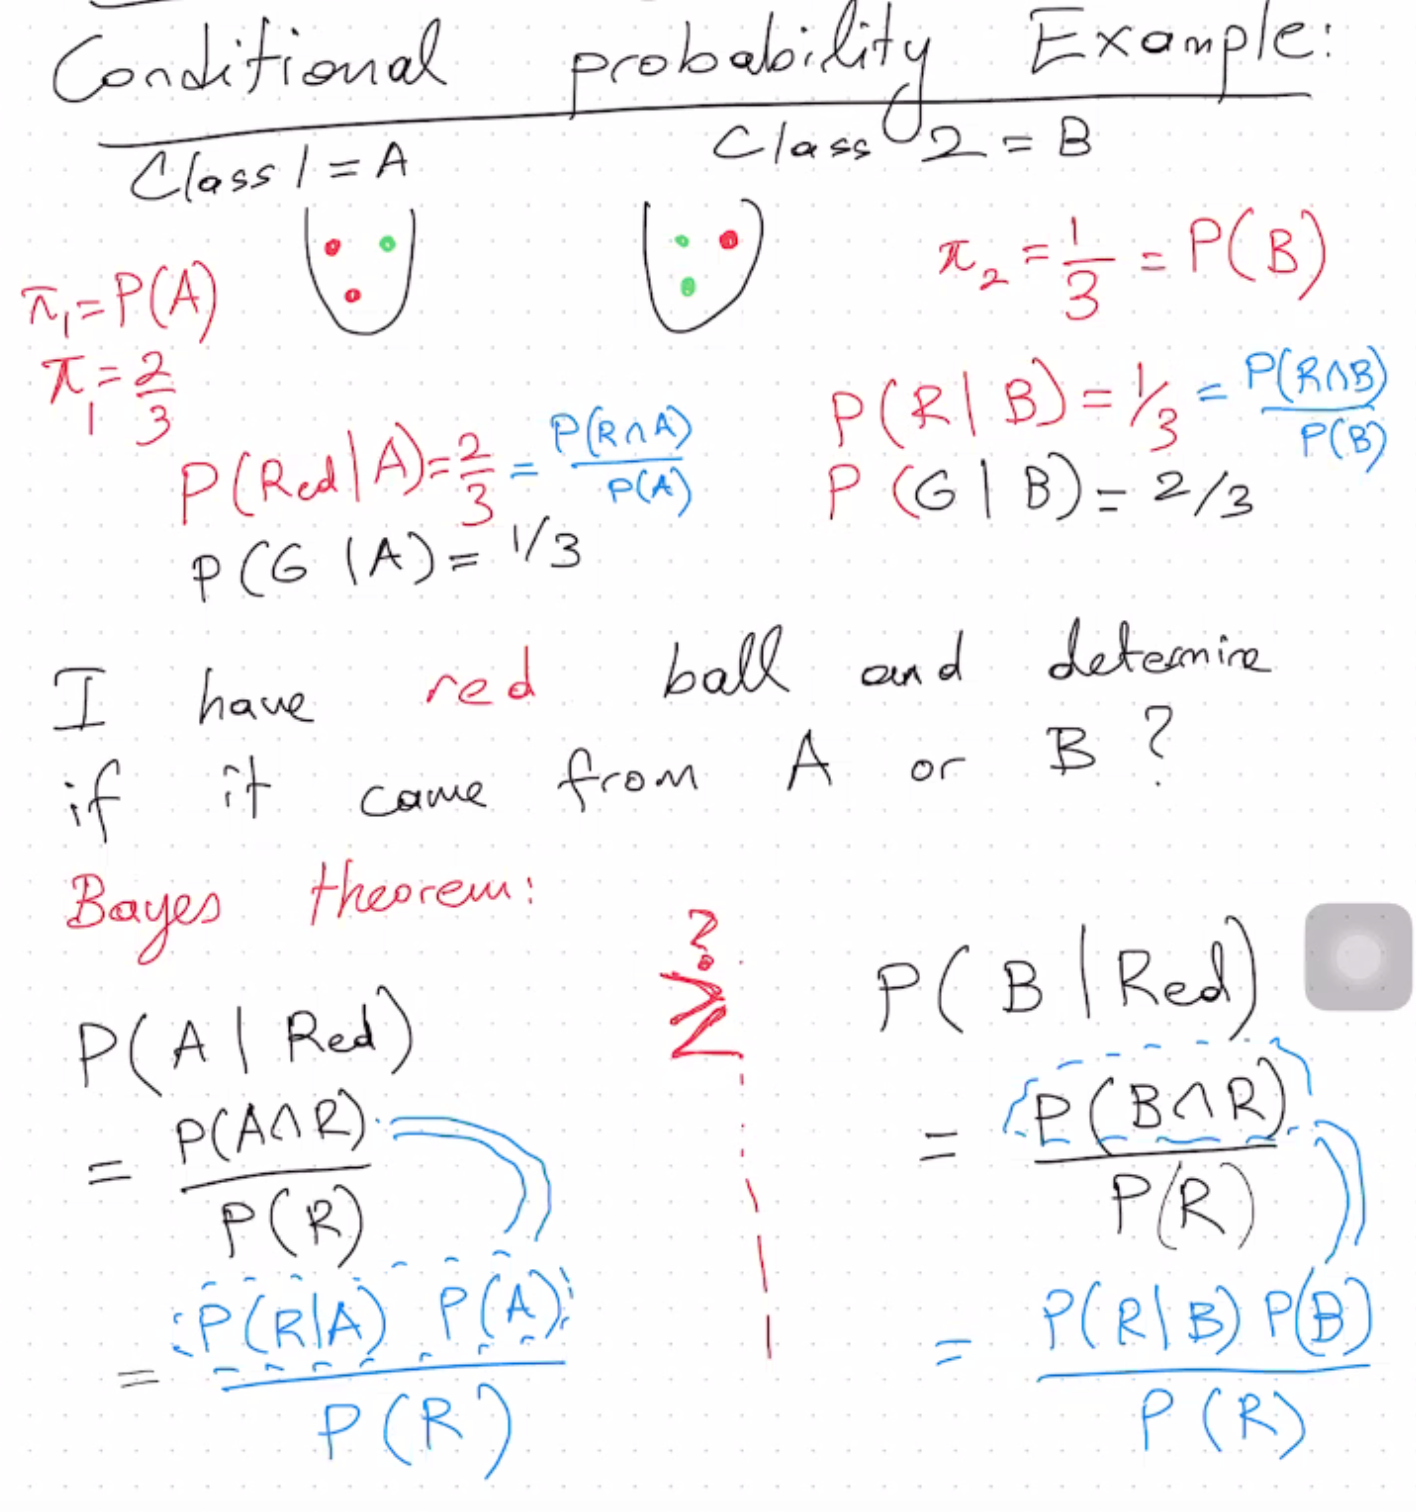 Conditional probability Example:
Class 1 = A
Class 2 = B
π₁ = P(A)
π₁ = 2/3
π₂ = 1/3 = P(B)
P(Red | A) = 2/3 = P(R∩A)/P(A)
P(G | A) = 1/3
P(R | B) = 1/3 = P(R∩B)/P(B)
P(G | B) = 2/3
I have red ball and determine
if it came from A or B ?
Bayes theorem:
P(A | Red)
= P(A∩R)/P(R)
= P(R|A) P(A)/P(R)
?
≷
P(B | Red)
= P(B∩R)/P(R)
= P(R|B) P(B)/P(R)